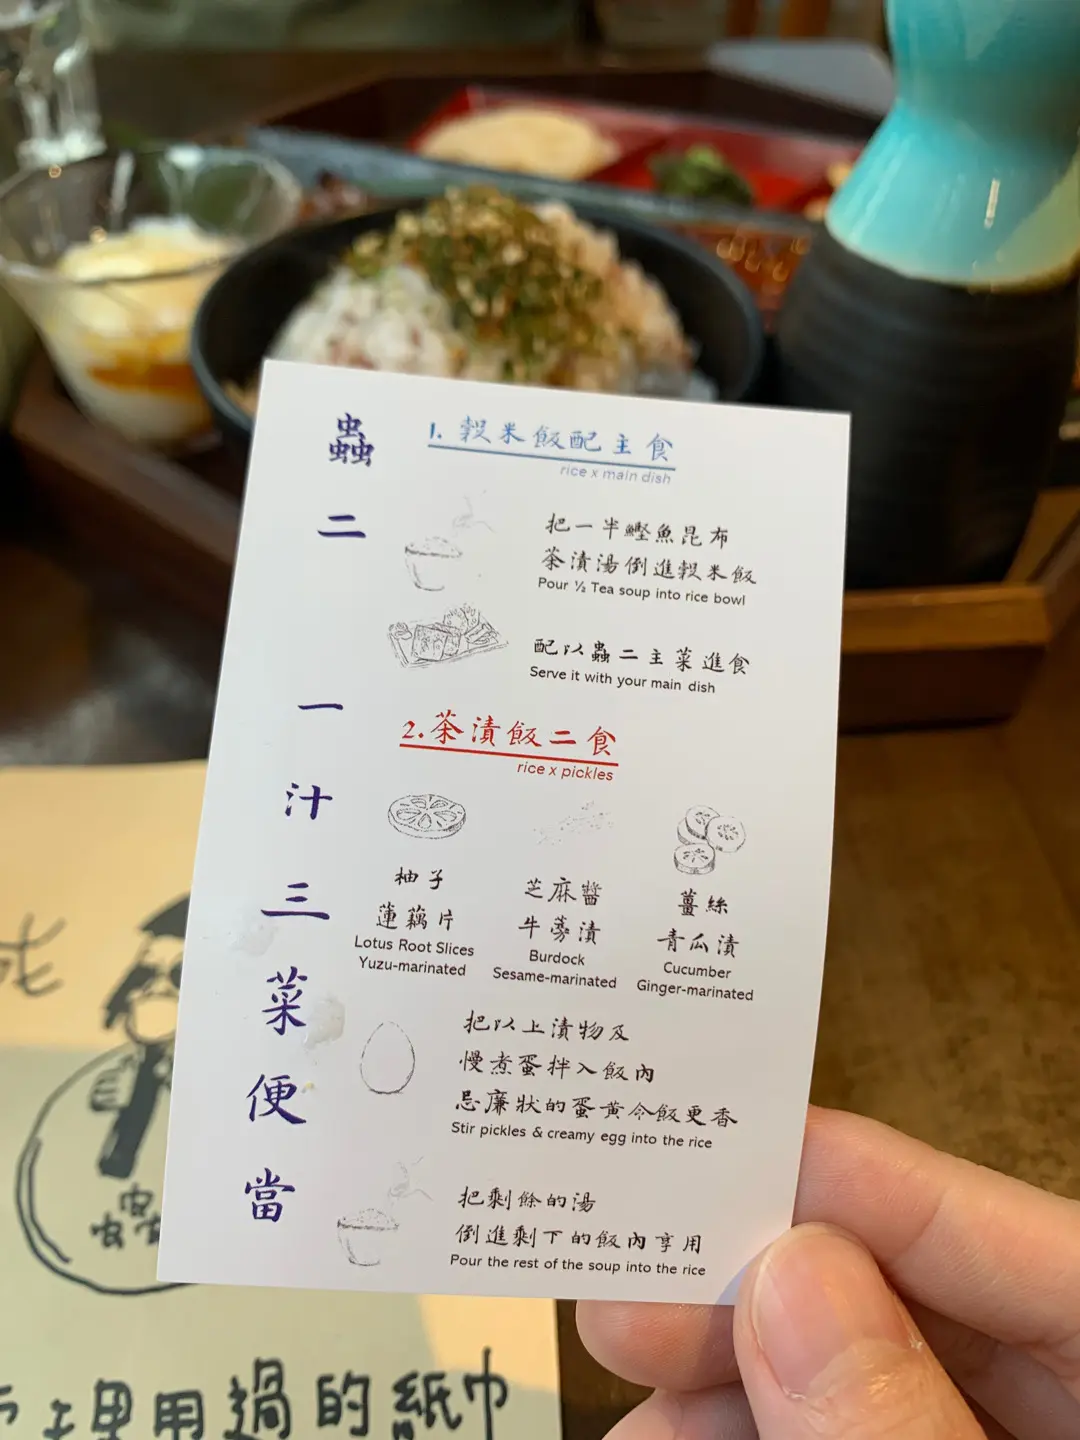 蟲二 一汁三菜便當
1. 穀米飯配主食
rice x main dish
把一半鰹魚昆布
茶漬湯倒進穀米飯
Pour ½ Tea soup into rice bowl
配以蟲二主菜進食
Serve it with your main dish
2.茶漬飯二食
rice x pickles
柚子
蓮藕片
Lotus Root Slices
Yuzu-marinated
芝麻醬
牛蒡漬
Burdock
Sesame-marinated
薑絲
青瓜漬
Cucumber
Ginger-marinated
把以上漬物及
慢煮蛋拌入飯內
忌廉狀的蛋黃令飯更香
Stir pickles & creamy egg into the rice
把剩餘的湯
倒進剩下的飯內享用
Pour the rest of the soup into the rice
理用過的紙巾